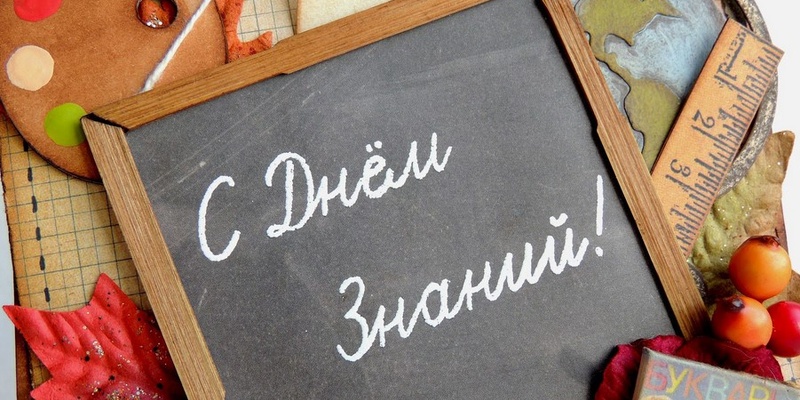 С Днём
Знаний!
1
2
3
БУКВАРЬ